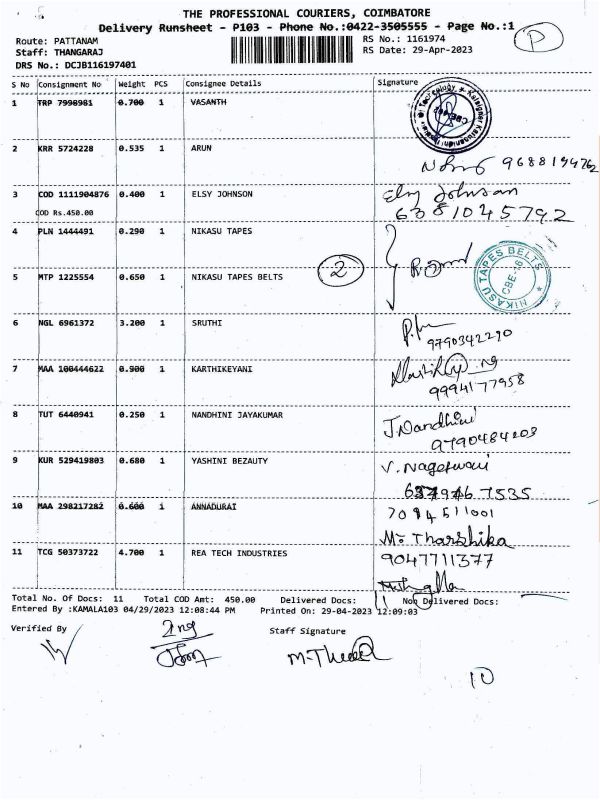 THE PROFESSIONAL COURIERS, COIMBATORE
Delivery Runsheet - P103 - Phone No.:0422-3505555 - Page No.:1
P
Route: PATTANAM
RS No.: 1161974
Staff: THANGARAJ
RS Date: 29-Apr-2023
DRS No.: DCJB116197401
S No Consignment No Weight PCS Consignee Details Signature
1 TRP 7990981 0.700 1 VASANTH
2 KRR 5724228 0.535 1 ARUN
9688194762
3 COD 1111904876 0.400 1 ELSY JOHNSON Elsy Johnson
COD Rs.450.00 6381045792
4 PLN 1444491 0.290 1 NIKASU TAPES
NIKASU TAPES BELTS
CBE-16
2
5 MTP 1225554 0.650 1 NIKASU TAPES BELTS
6 NGL 6961372 3.200 1 SRUTHI
9790342290
7 MAA 100444622 0.900 1 KARTHIKEYANI
9994177958
8 TUT 6440941 0.250 1 NANDHINI JAYAKUMAR J.Nandhini
9790484203
9 KUR 529419803 0.680 1 YASHINI BEZAUTY V. Nageswari
7535
10 MAA 298217282 0.600 1 ANNADURAI 7094511001
M. Tharshika
11 TCG 50373722 4.700 1 REA TECH INDUSTRIES 9047711377
Total No. Of Docs: 11 Total COD Amt: 450.00 Delivered Docs: 11 Non Delivered Docs:
Entered By :KAMALA103 04/29/2023 12:08:44 PM Printed On: 29-04-2023 12:09:03
Verified By
Staff Signature
10